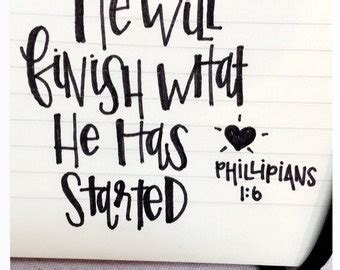 He Will
finish what
He has
started
Phillipians
1:6